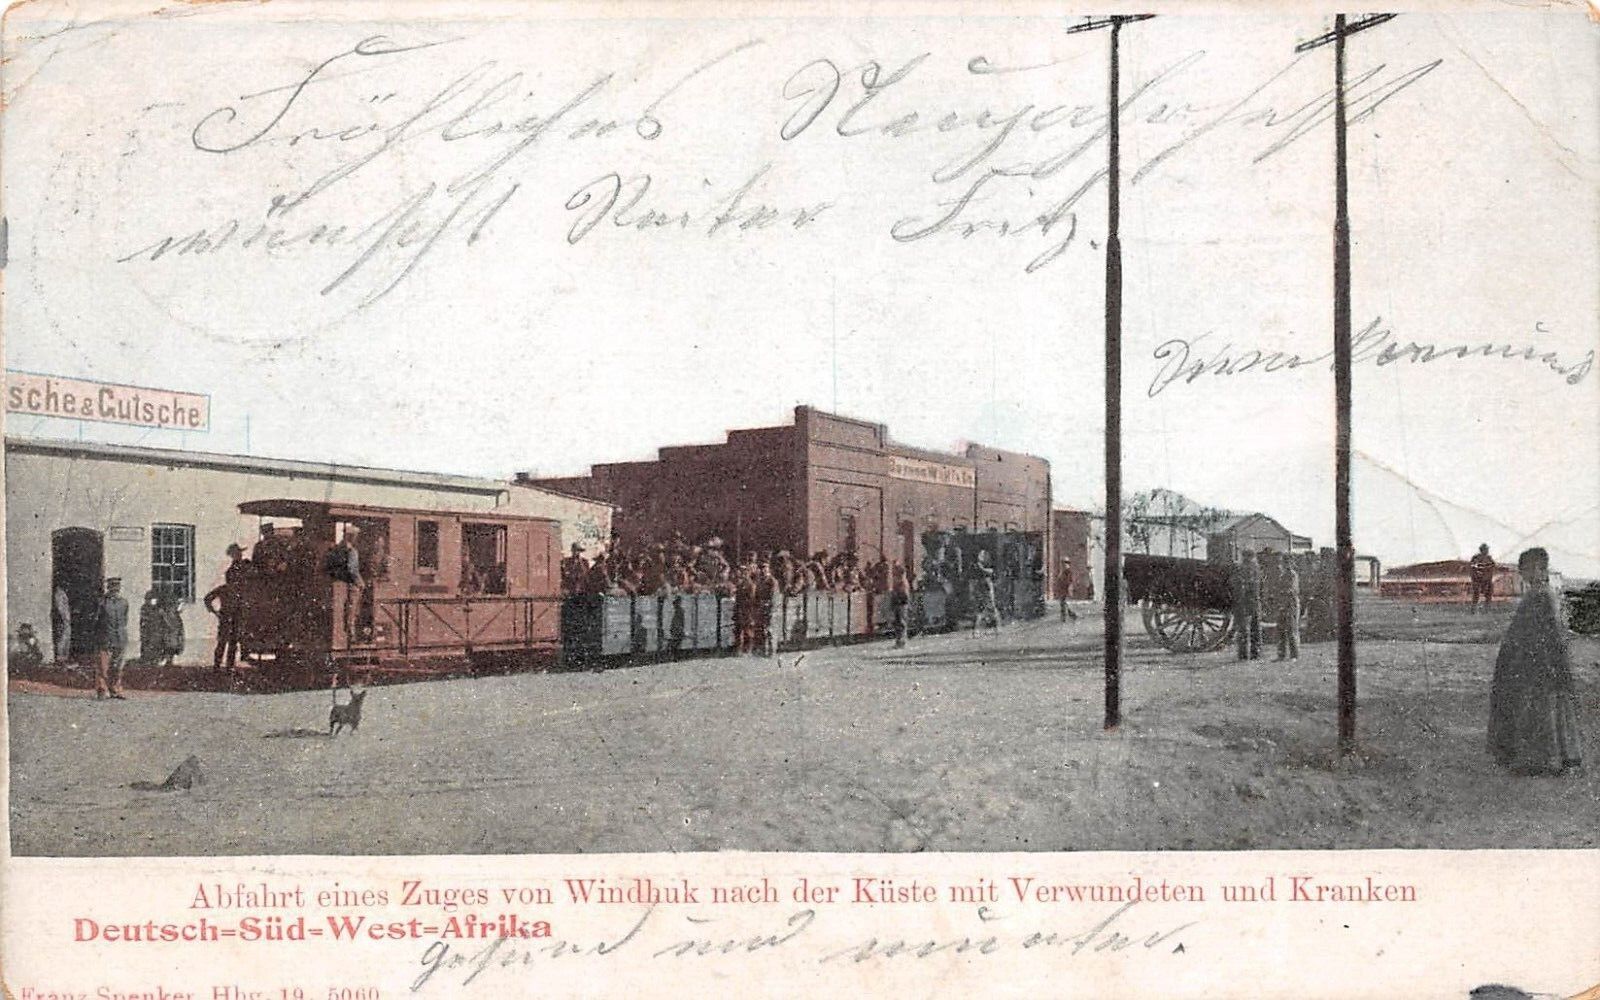 Fröhliches Neujahrsfest
wünscht Reiter Fritz.
sche & Gutsche.
Abfahrt eines Zuges von Windhuk nach der Küste mit Verwundeten und Kranken
Deutsch=Süd=West=Afrika
gesund und munter.
Franz Spenker, Hbg. 19. 5060